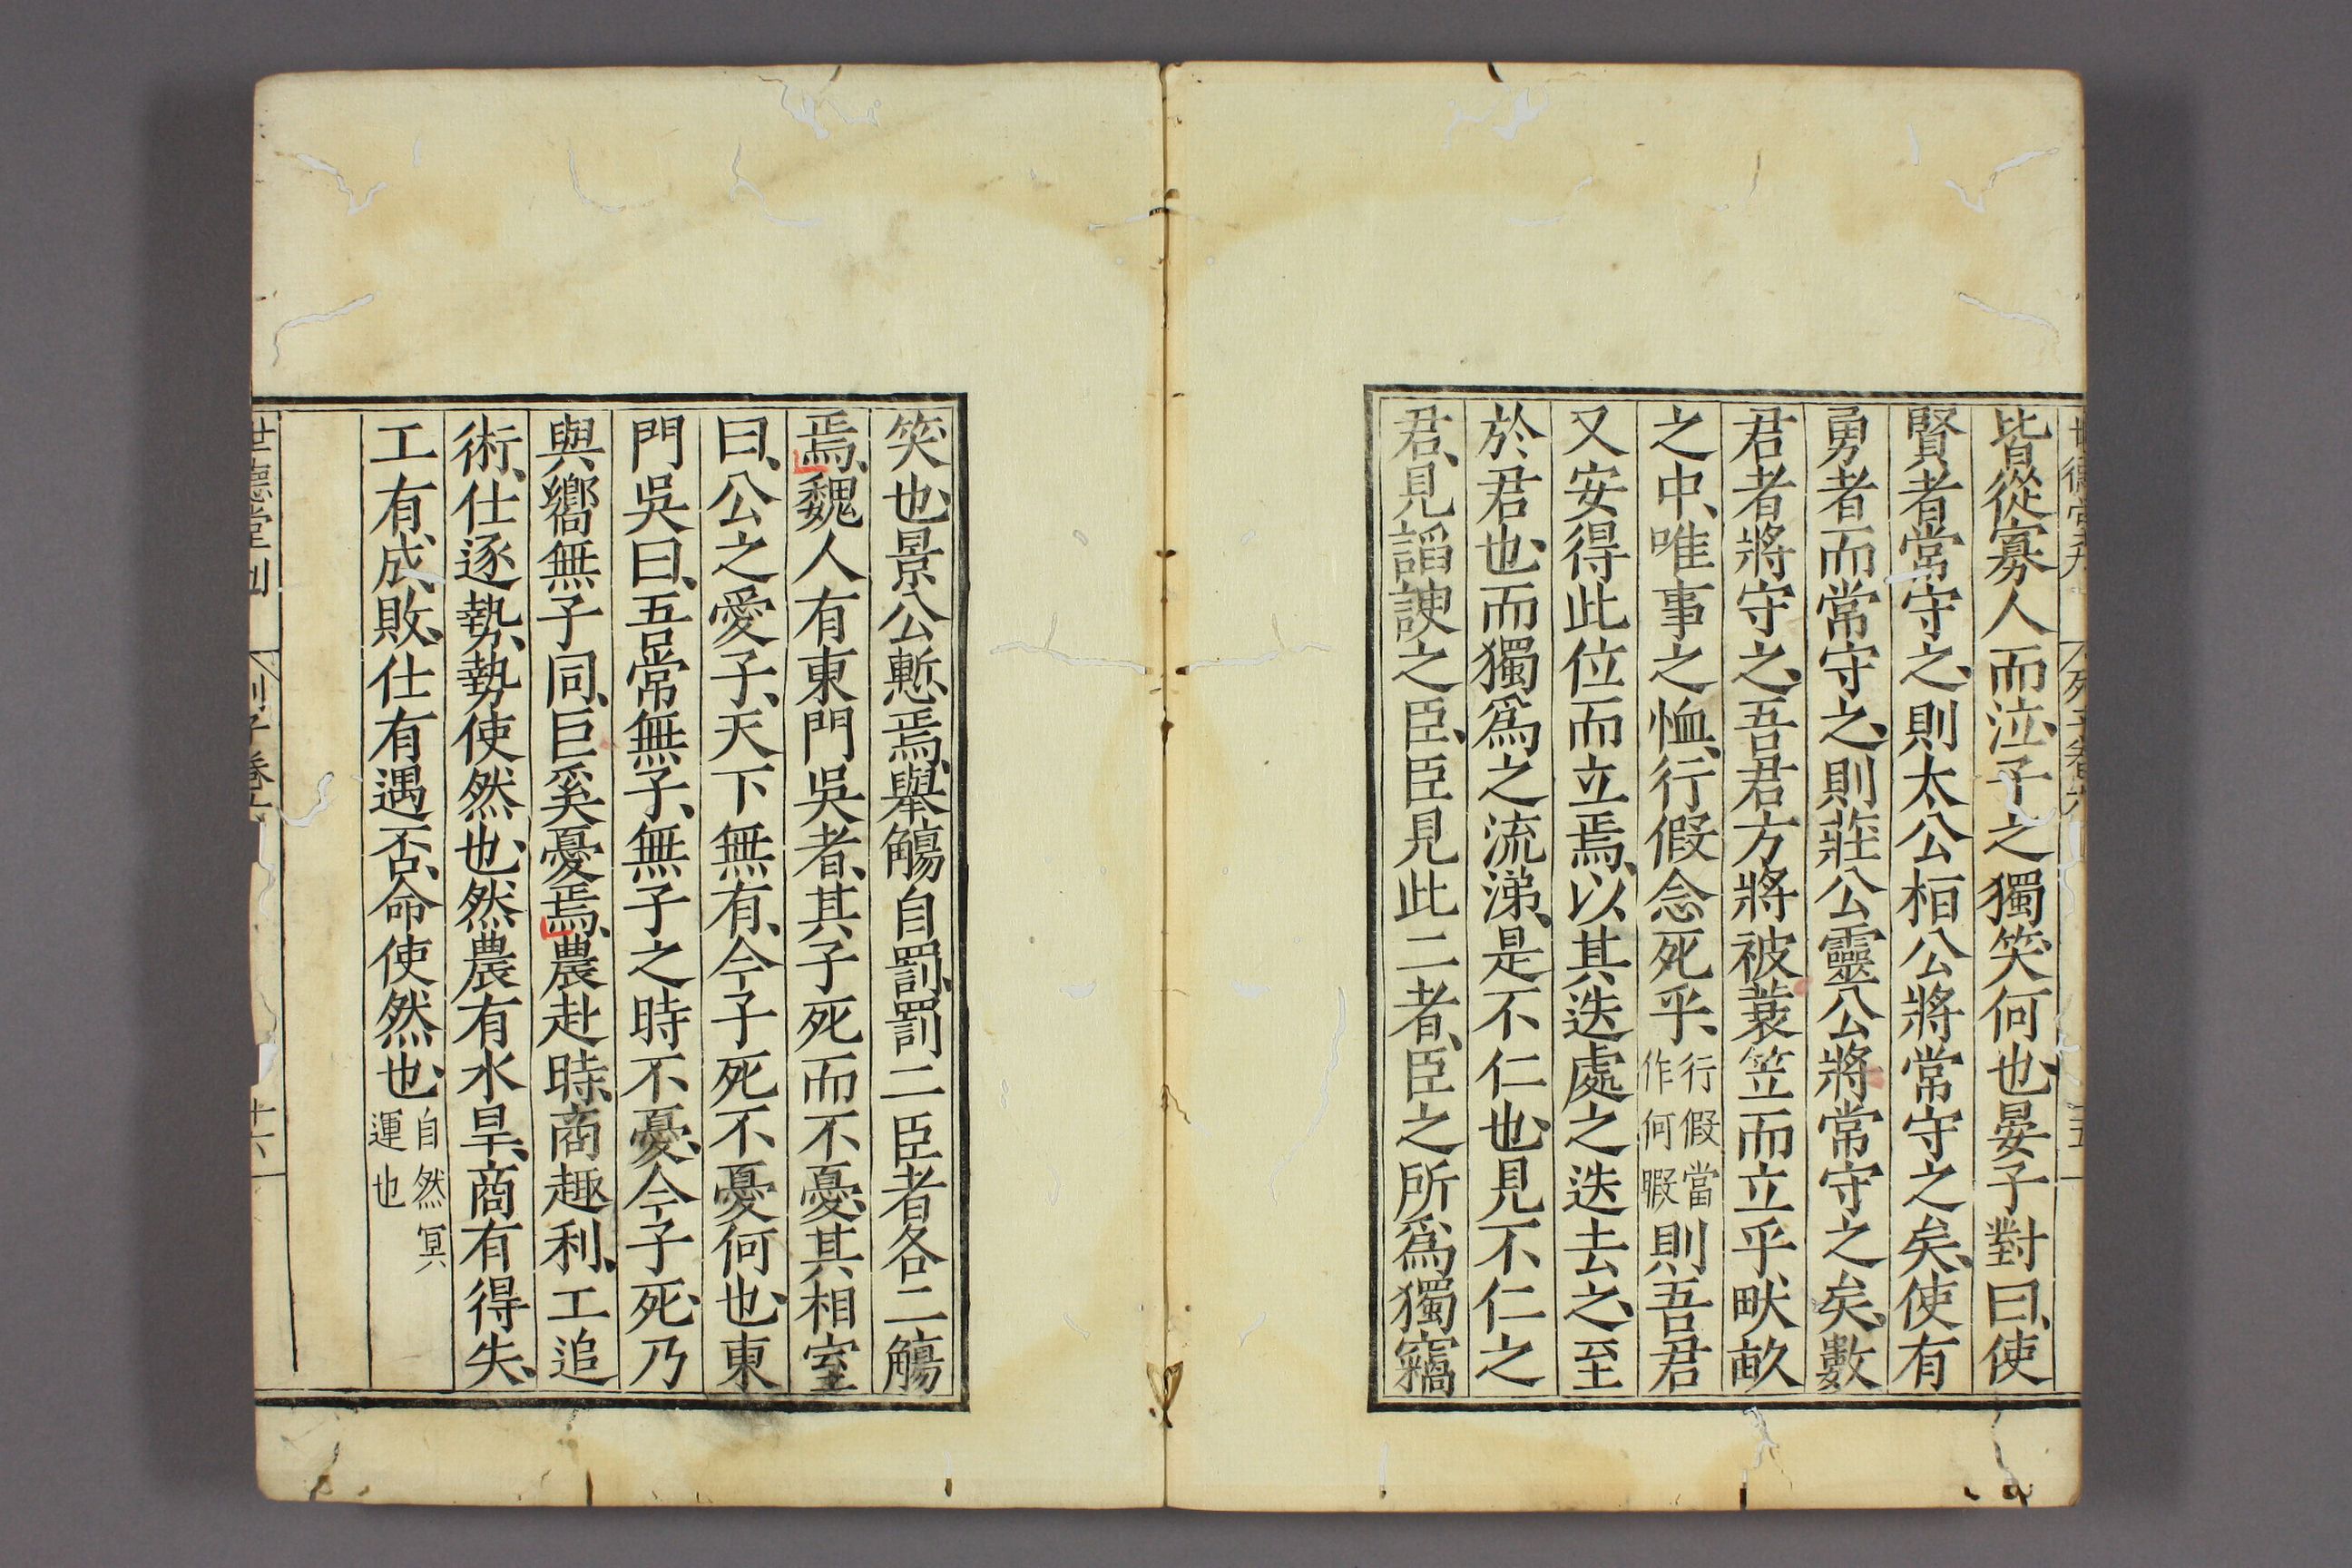 皆從寡人而泣、子之獨笑何也、晏子對曰、使
賢者常守之、則太公桓公將常守之矣、使有
勇者而常守之、則莊公靈公將常守之矣、數
君者將守之、吾君方將被蓑笠而立乎畎畝
之中、唯事之恤、行假念死乎、行假當作何暇則吾君
又安得此位而立焉、以其迭處之迭去之、至
於君也、而獨爲之流涕、是不仁也、見不仁之
君、見諂諛之臣、臣見此二者、臣之所爲獨竊
笑也、景公慙焉、舉觴自罰、罰二臣者各二觴
焉、魏人有東門吳者、其子死而不憂、其相室
曰、公之愛子、天下無有、今子死不憂何也、東
門吳曰、吾常無子、無子之時不憂、今子死、乃
與嚮無子同、臣奚憂焉、農赴時、商趣利、工追
術、仕逐勢、勢使然也、然農有水旱、商有得失、
工有成敗、仕有遇否、命使然也、自然冥運也
世德堂刊
列子卷六
十六